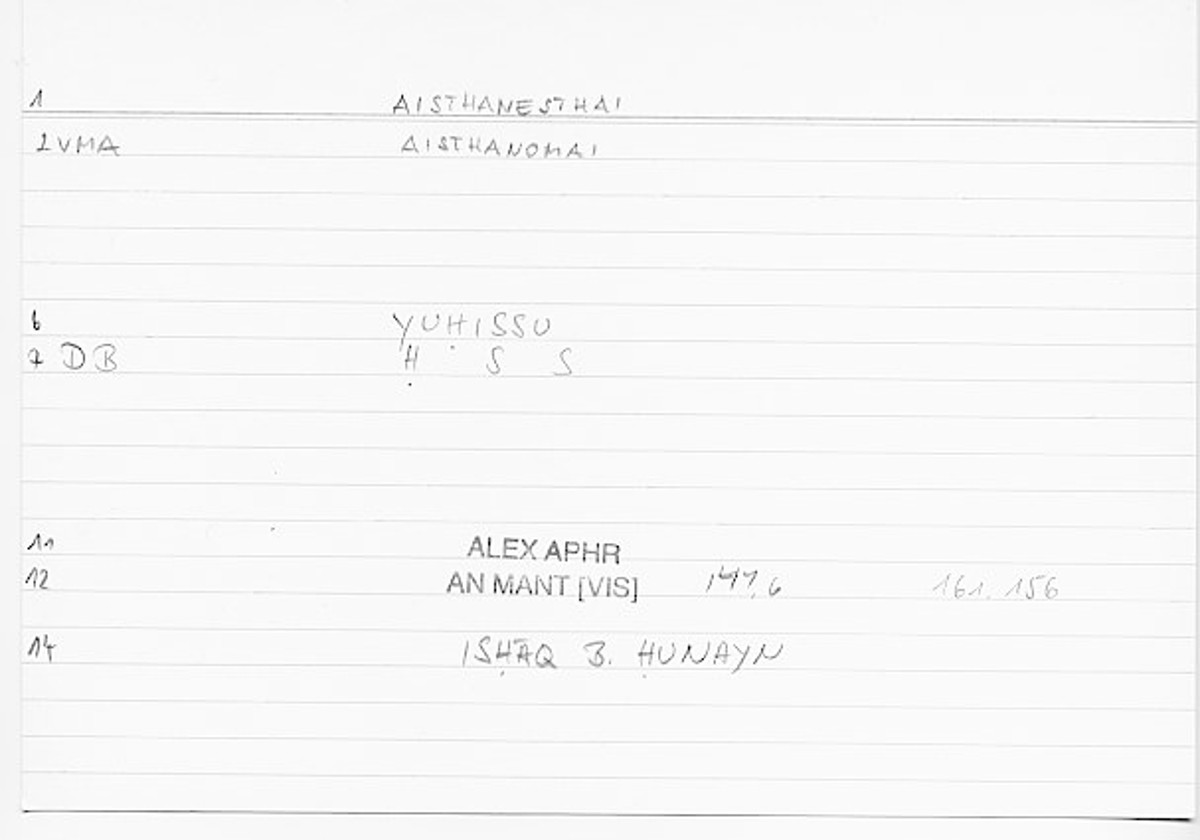 1 AISTHANESTHAI
2 VMA AISTHANOMAI
6 YUḤISSU
7 DB Ḥ S S
11 ALEX APHR
12 AN MANT [VIS] 147,6 161.156
14 ISḤĀQ B. ḤUNAYN